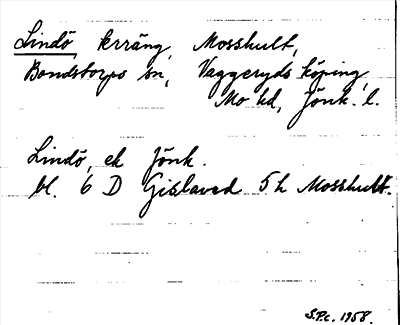 Lindö, krräng, Mosshult,
Bondstorps sn, Vaggeryds köping
Mo hd, Jönk. l.
Lindö, ek Jönk.
bl. 6 D Gislaved 5 h Mosshult.
S.P.c. 1958.